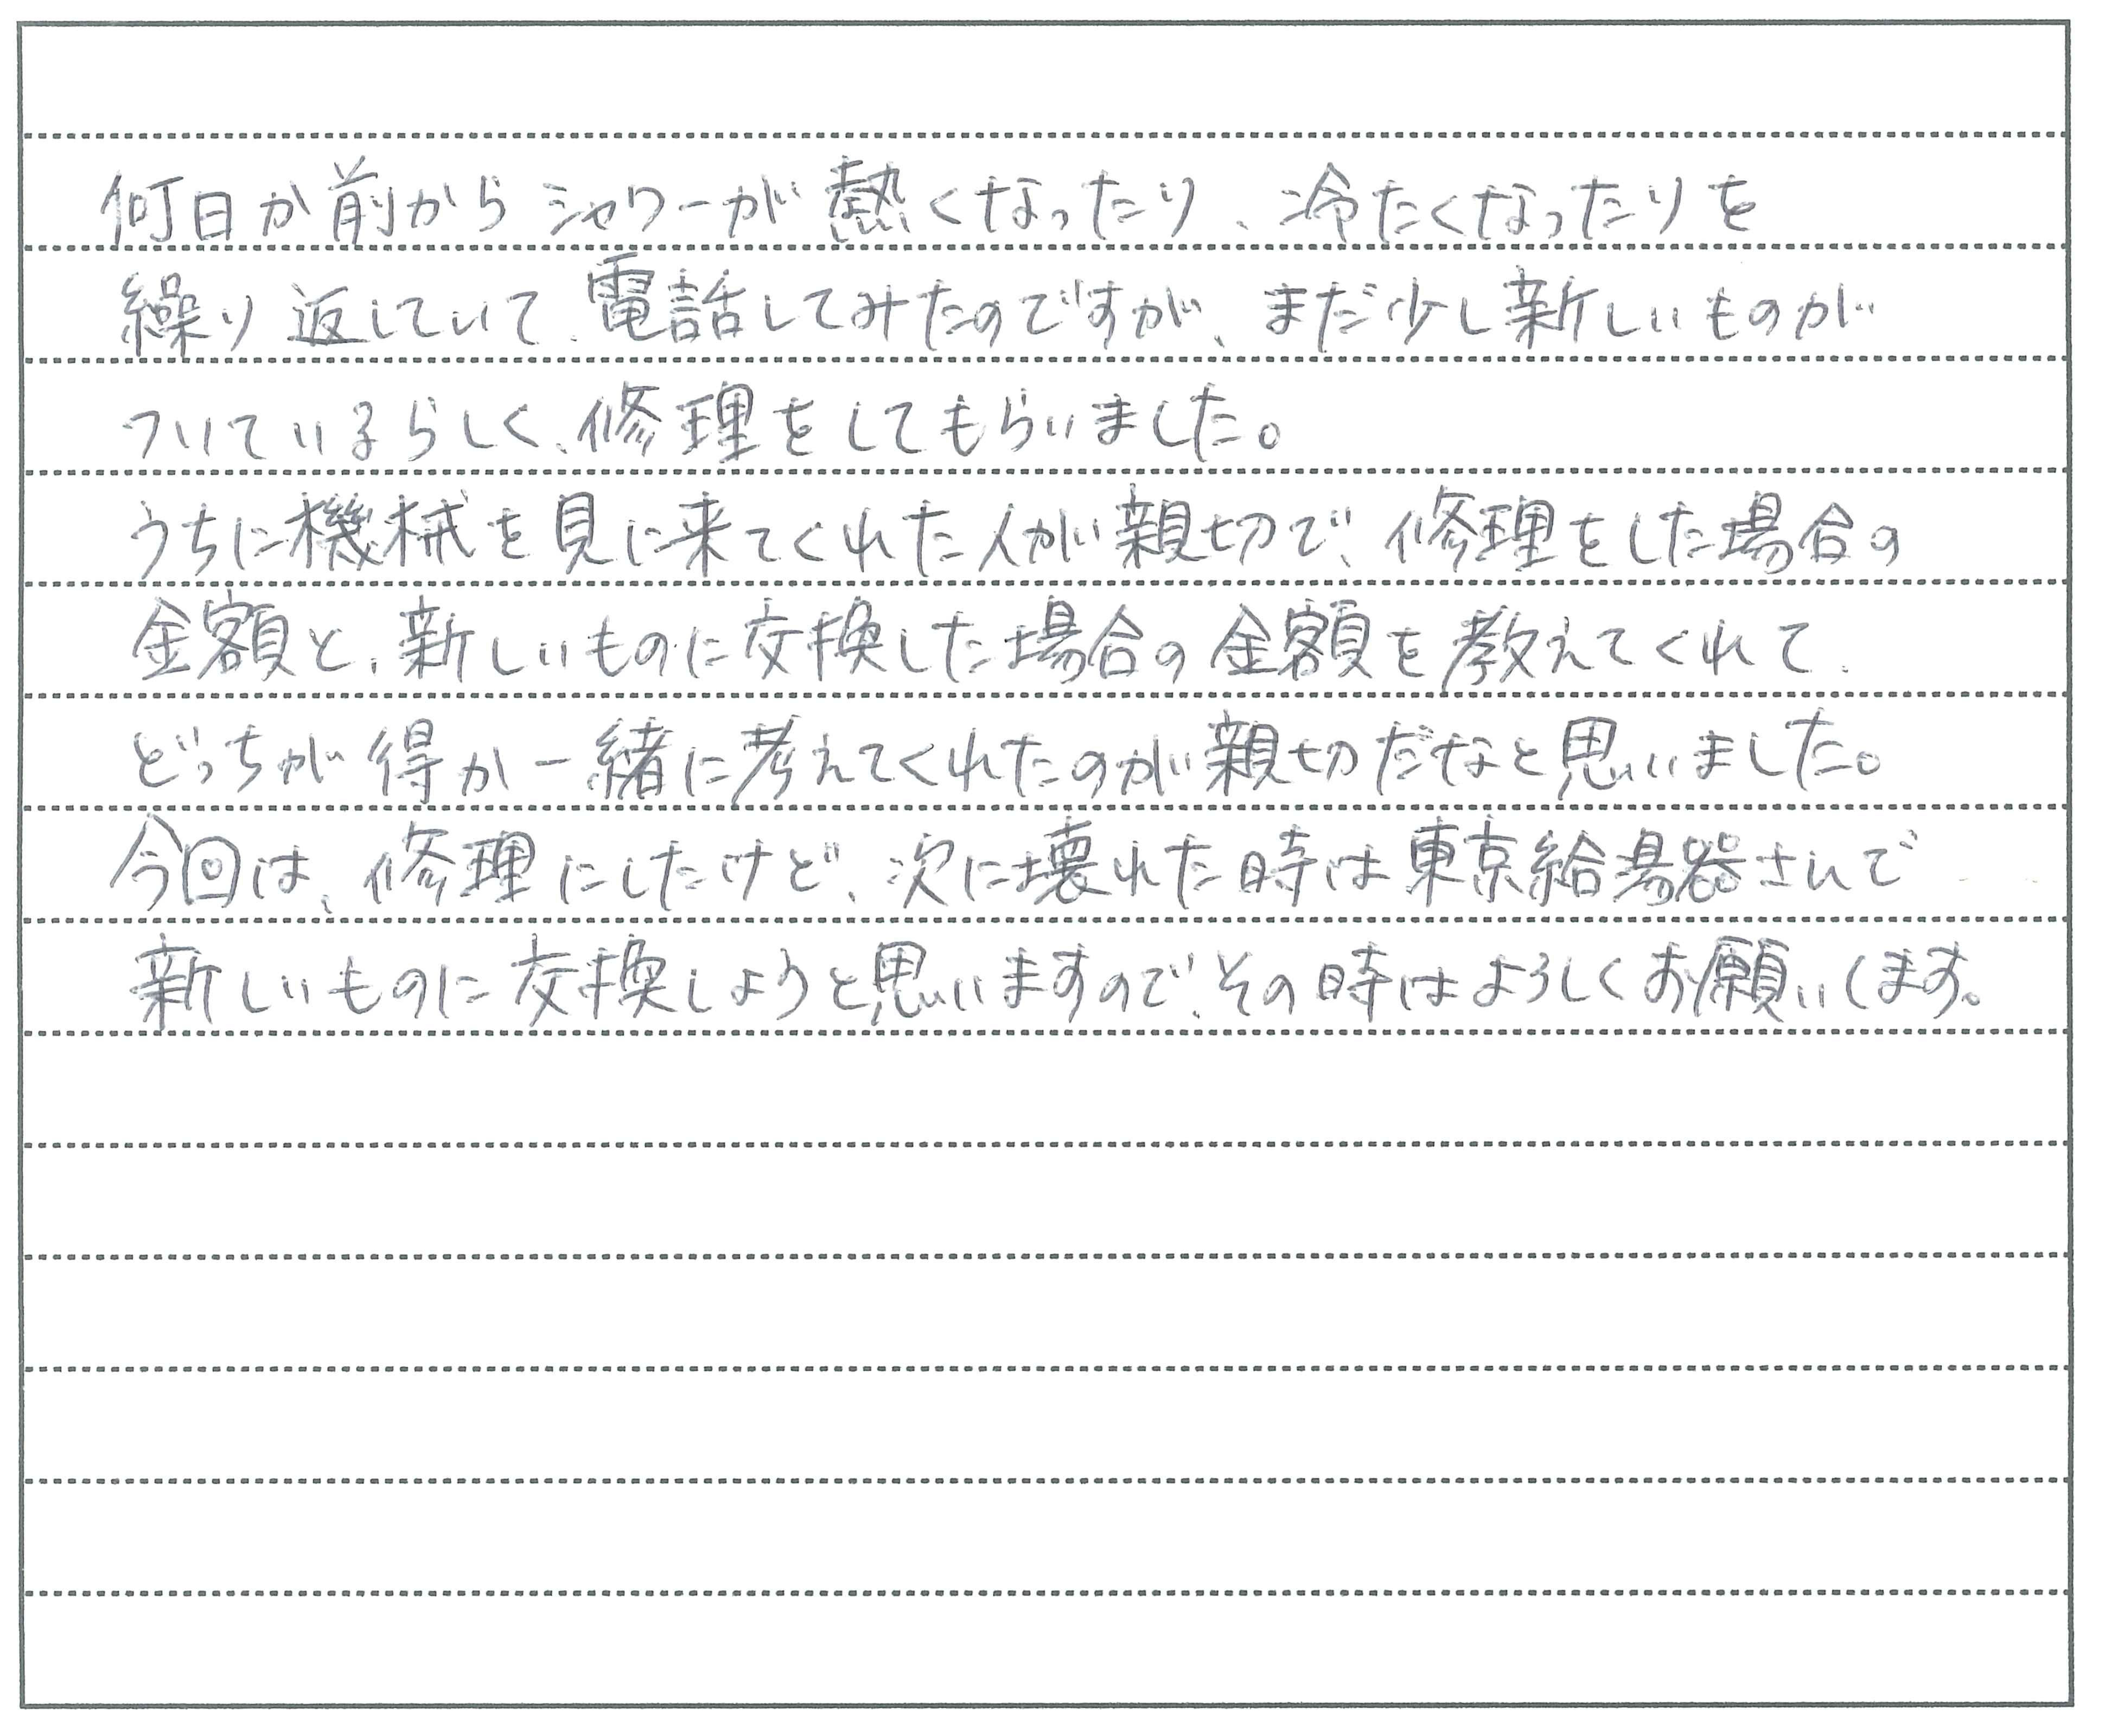 何日か前からシャワーが熱くなったり、冷たくなったりを
繰り返していて、電話してみたのですが、まだ少し新しいものが
ついているらしく、修理をしてもらいました。
うちに機械を見に来てくれた人が親切で、修理をした場合の
金額と、新しいものに交換した場合の金額を教えてくれて、
どっちが得か一緒に考えてくれたのが親切だなと思いました。
今回は、修理にしたけど、次に壊れた時は東京給湯器さんで
新しいものに交換しようと思いますので、その時はよろしくお願いします。